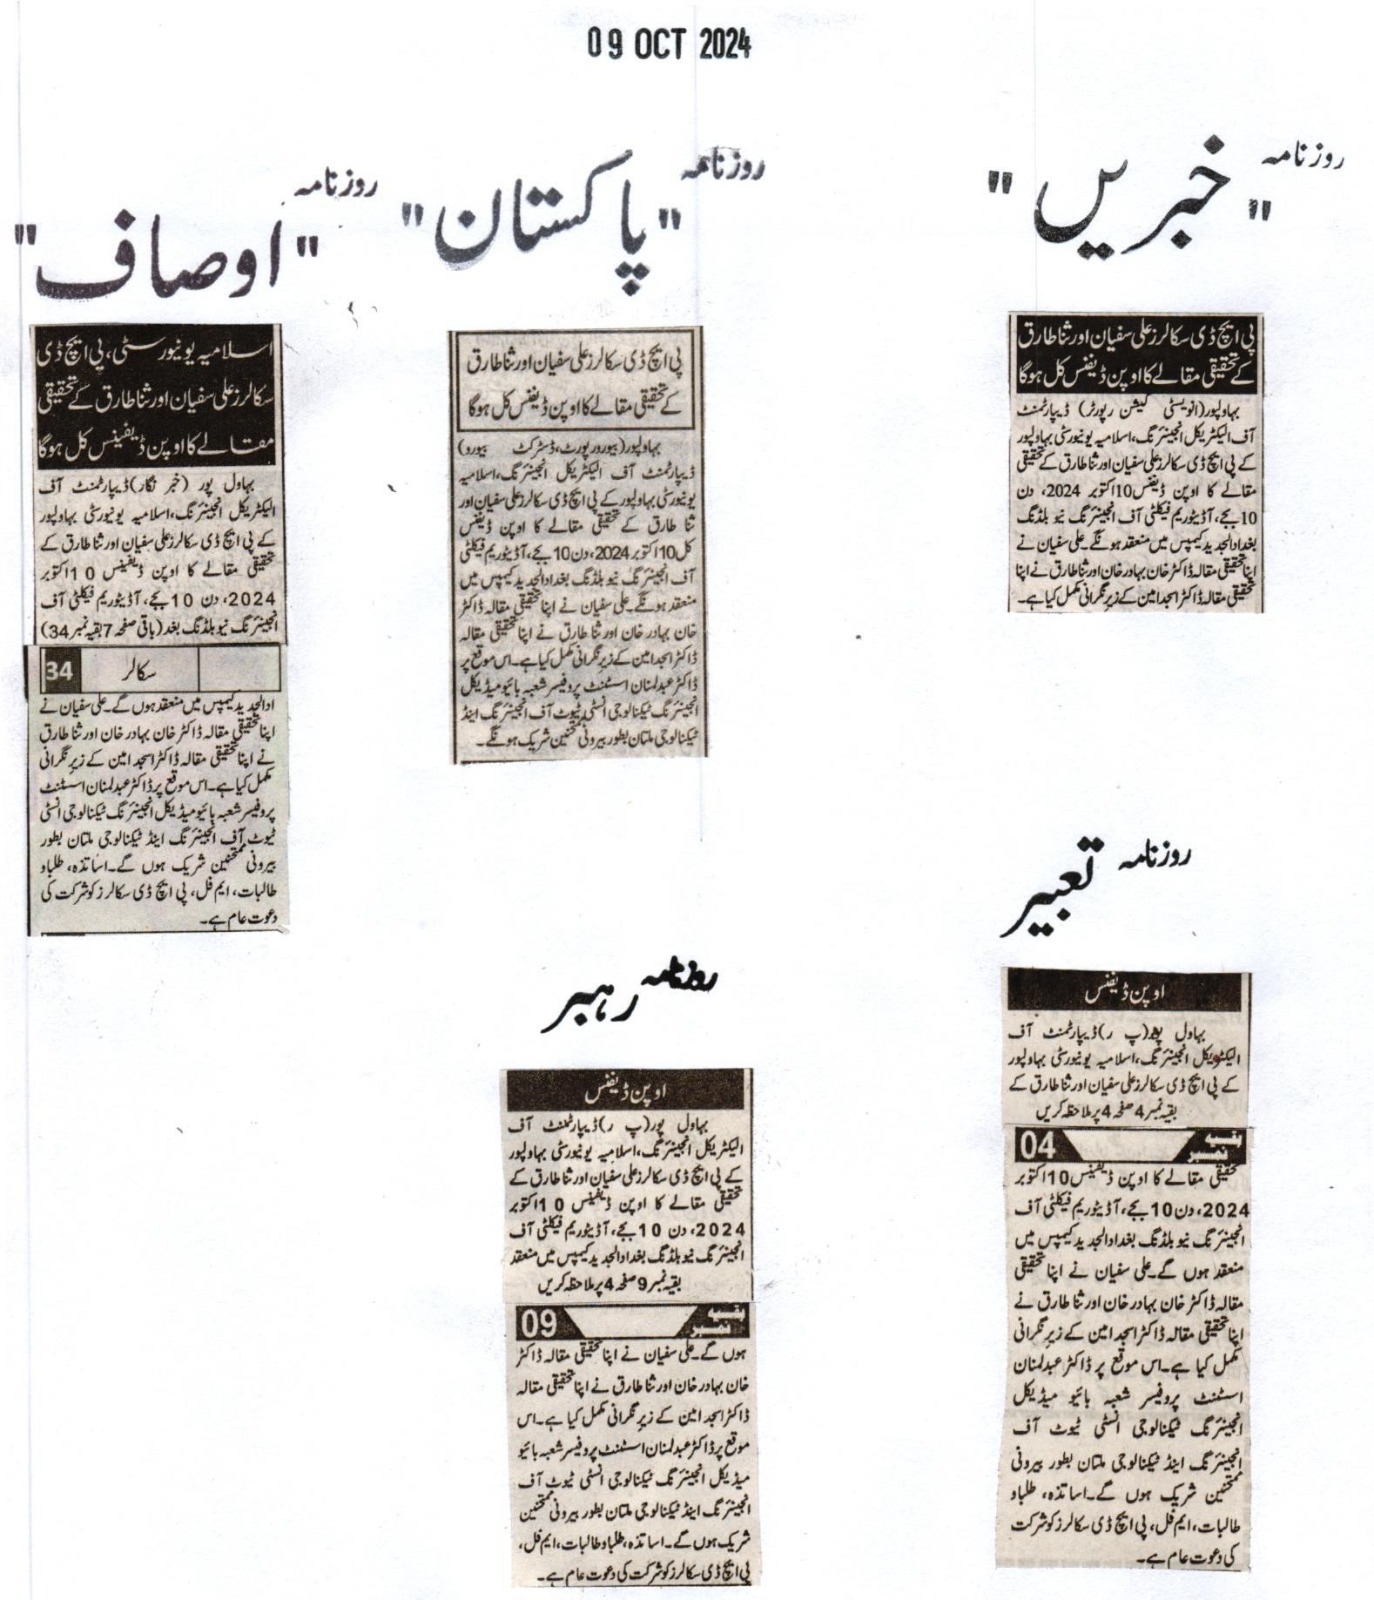 09 OCT 2024
روزنامہ
"خبریں"
پی ایچ ڈی سکالرز علی سفیان اور ثنا طارق
کے تحقیقی مقالے کا اوپن ڈیفنس کل ہوگا
بہاولپور (انویسٹی گیشن رپورٹر) ڈیپارٹمنٹ
آف الیکٹریکل انجینئرنگ، اسلامیہ یونیورسٹی بہاولپور
کے پی ایچ ڈی سکالرز علی سفیان اور ثنا طارق کے تحقیقی
مقالے کا اوپن ڈیفنس 10 اکتوبر 2024، دن
10 بجے، آڈیٹوریم فیکلٹی آف انجینئرنگ نیو بلڈنگ
بغداد الجدید کیمپس میں منعقد ہونگے۔ علی سفیان نے
اپنا تحقیقی مقالہ ڈاکٹر خان بہادر خان اور ثنا طارق نے اپنا
تحقیقی مقالہ ڈاکٹر اسجد امین کے زیر نگرانی مکمل کیا ہے۔
روزنامہ
"پاکستان"
پی ایچ ڈی سکالرز علی سفیان اور ثنا طارق
کے تحقیقی مقالے کا اوپن ڈیفنس کل ہوگا
بہاولپور (بیورو رپورٹ، ڈسٹرکٹ بیورو)
ڈیپارٹمنٹ آف الیکٹریکل انجینئرنگ، اسلامیہ
یونیورسٹی بہاولپور کے پی ایچ ڈی سکالرز علی سفیان اور
ثنا طارق کے تحقیقی مقالے کا اوپن ڈیفنس
کل 10 اکتوبر 2024، دن 10 بجے، آڈیٹوریم فیکلٹی
آف انجینئرنگ نیو بلڈنگ بغداد الجدید کیمپس میں
منعقد ہونگے۔ علی سفیان نے اپنا تحقیقی مقالہ ڈاکٹر
خان بہادر خان اور ثنا طارق نے اپنا تحقیقی مقالہ
ڈاکٹر اسجد امین کے زیر نگرانی مکمل کیا ہے۔ اس موقع پر
ڈاکٹر عبدلمنان اسسٹنٹ پروفیسر شعبہ بائیو میڈیکل
انجینئرنگ ٹیکنالوجی انسٹی ٹیوٹ آف انجینئرنگ اینڈ
ٹیکنالوجی ملتان بطور بیرونی ممتحنین شریک ہونگے۔
روزنامہ
"اوصاف"
اسلامیہ یونیورسٹی، پی ایچ ڈی
سکالرز علی سفیان اور ثنا طارق کے تحقیقی
مقالے کا اوپن ڈیفینس کل ہوگا
بہاول پور (خبر نگار) ڈیپارٹمنٹ آف
الیکٹریکل انجینئرنگ، اسلامیہ یونیورسٹی بہاولپور
کے پی ایچ ڈی سکالرز علی سفیان اور ثنا طارق کے
تحقیقی مقالے کا اوپن ڈیفینس 10 اکتوبر
2024، دن 10 بجے، آڈیٹوریم فیکلٹی آف
انجینئرنگ نیو بلڈنگ بغد (باقی صفحہ 7 بقیہ نمبر 34)
34 سکالر
ادالجدید کیمپس میں منعقد ہوں گے۔ علی سفیان نے
اپنا تحقیقی مقالہ ڈاکٹر خان بہادر خان اور ثنا طارق
نے اپنا تحقیقی مقالہ ڈاکٹر اسجد امین کے زیر نگرانی
مکمل کیا ہے۔ اس موقع پر ڈاکٹر عبدلمنان اسسٹنٹ
پروفیسر شعبہ بائیو میڈیکل انجینئرنگ ٹیکنالوجی انسٹی
ٹیوٹ آف انجینئرنگ اینڈ ٹیکنالوجی ملتان بطور
بیرونی ممتحنین شریک ہوں گے۔ اساتذہ، طلباو
طالبات، ایم فل، پی ایچ ڈی سکالرز کو شرکت کی
دعوت عام ہے۔
روزنامہ
تعبیر
اوپن ڈیفنس
بہاول پور (پ ر) ڈیپارٹمنٹ آف
الیکٹریکل انجینئرنگ، اسلامیہ یونیورسٹی بہاولپور
کے پی ایچ ڈی سکالرز علی سفیان اور ثنا طارق کے
بقیہ نمبر 4 صفحہ 4 پر ملاحظہ کریں
بقیہ نمبر 04
تحقیقی مقالے کا اوپن ڈیفینس 10 اکتوبر
2024، دن 10 بجے، آڈیٹوریم فیکلٹی آف
انجینئرنگ نیو بلڈنگ بغداد الجدید کیمپس میں
منعقد ہوں گے۔ علی سفیان نے اپنا تحقیقی
مقالہ ڈاکٹر خان بہادر خان اور ثنا طارق نے
اپنا تحقیقی مقالہ ڈاکٹر اسجد امین کے زیر نگرانی
مکمل کیا ہے۔ اس موقع پر ڈاکٹر عبدلمنان
اسسٹنٹ پروفیسر شعبہ بائیو میڈیکل
انجینئرنگ ٹیکنالوجی انسٹی ٹیوٹ آف
انجینئرنگ اینڈ ٹیکنالوجی ملتان بطور بیرونی
ممتحنین شریک ہوں گے۔ اساتذہ، طلباو
طالبات، ایم فل، پی ایچ ڈی سکالرز کو شرکت
کی دعوت عام ہے۔
روزنامہ
رہبر
اوپن ڈیفنس
بہاول پور (پ ر) ڈیپارٹمنٹ آف
الیکٹریکل انجینئرنگ، اسلامیہ یونیورسٹی بہاولپور
کے پی ایچ ڈی سکالرز علی سفیان اور ثنا طارق کے
تحقیقی مقالے کا اوپن ڈیفینس 10 اکتوبر
2024، دن 10 بجے، آڈیٹوریم فیکلٹی آف
انجینئرنگ نیو بلڈنگ بغداد الجدید کیمپس میں منعقد
بقیہ نمبر 9 صفحہ 4 پر ملاحظہ کریں
بقیہ نمبر 09
ہوں گے۔ علی سفیان نے اپنا تحقیقی مقالہ ڈاکٹر
خان بہادر خان اور ثنا طارق نے اپنا تحقیقی مقالہ
ڈاکٹر اسجد امین کے زیر نگرانی مکمل کیا ہے۔ اس
موقع پر ڈاکٹر عبدلمنان اسسٹنٹ پروفیسر شعبہ بائیو
میڈیکل انجینئرنگ ٹیکنالوجی انسٹی ٹیوٹ آف
انجینئرنگ اینڈ ٹیکنالوجی ملتان بطور بیرونی ممتحنین
شریک ہوں گے۔ اساتذہ، طلباو طالبات، ایم فل،
پی ایچ ڈی سکالرز کو شرکت کی دعوت عام ہے۔